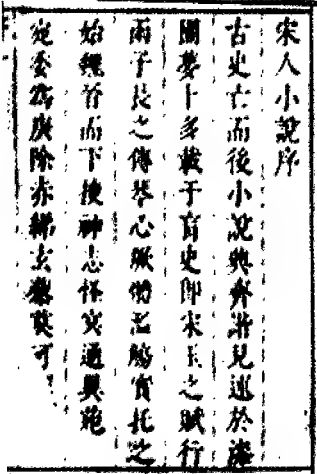 宋人小說序
古史亡而後小說興齊諧見述於漆
園夢卜多載于盲史即宋玉之賦行
雨子長之傳琴心厥體濫觴實托之
始魏晉而下搜神志怪冥通異苑
宛委為庚除亦繡玄莫可